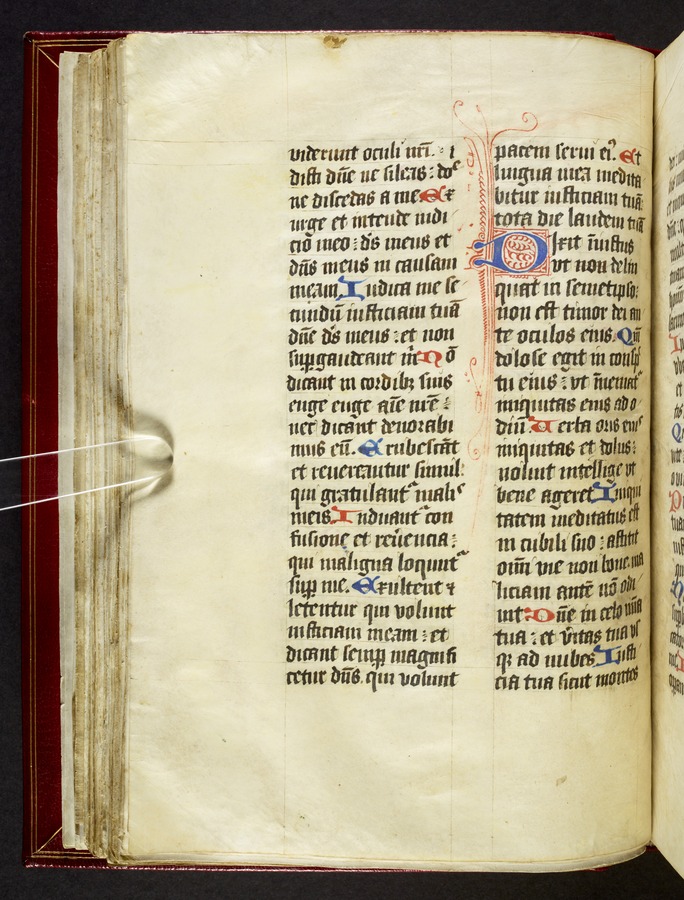 viderunt oculi nr̄i. i
disti dn̄e ne sileas : do
ne discedas a me Ex
urge et intende iudi
cio meo : ds̄ meus et
dn̄s meus in causam
meam Iudica me se
cundū iusticiam tuā
dn̄e ds̄ meus : et non
suꝑgaudeant m̄ Nō
dicant in cordibꝫ suis
euge euge aīe nr̄e :
nec dicant deuorabi
mus eū. Erubescāt
et reuereantur simul :
qui gratulant᷑ malis
meis. Induant᷑ con
fusione et reu̾encia :
qui maligna loquunt᷑
suꝑ me. Exultent ⁊
letentur qui volunt
iusticiam meam : et
dicant semꝑ magnifi
cetur dn̄s. qui volunt
pacem serui ei᷒. Et
lingua mea medita
bitur iusticiam tuā :
tota die laudem tuā
Dixit iniustus
vt non delin
quat in semetipso :
non est timor dei an
te oculos eius. Qm̄
dolose egit in consp̄
tu eius : vt inueniat᷑
iniquitas eius ad o
diū. Uerba oris eius
iniquitas et dolus :
noluit intellige vt
bene ageret Iniqui
tatem meditatus est
in cubili suo : astitit
om̄i vie non bone. ma
liciam autē nō odi
uit Dn̄e in celo mīa
tua : et v̾itas tua vs
qꝫ ad nubes Iusti
cia tua sicut montes